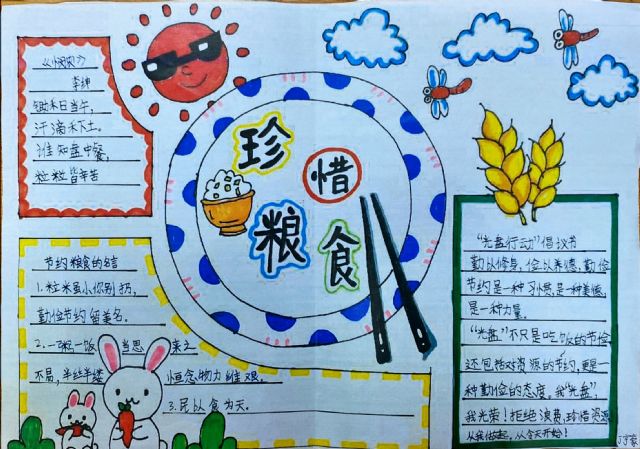 《悯农》
李绅
锄禾日当午，
汗滴禾下土。
谁知盘中餐，
粒粒皆辛苦
珍
惜
粮
食
节约粮食的名言
1.粒米虽小你别扔，
勤俭节约留美名。
2.一粥一饭 当思 来之
不易，半丝半缕 恒念物力维艰。
3.民以食为天。
“光盘行动”倡议书
勤以修身，俭以养德，勤俭
节约是一种习惯，是一种美德，
是一种力量。
“光盘”不只是吃饭的节俭
还包括对资源的节约，更是一
种勤俭的态度，我“光盘”，
我光荣！拒绝浪费，珍惜资源
从我做起，从今天开始！